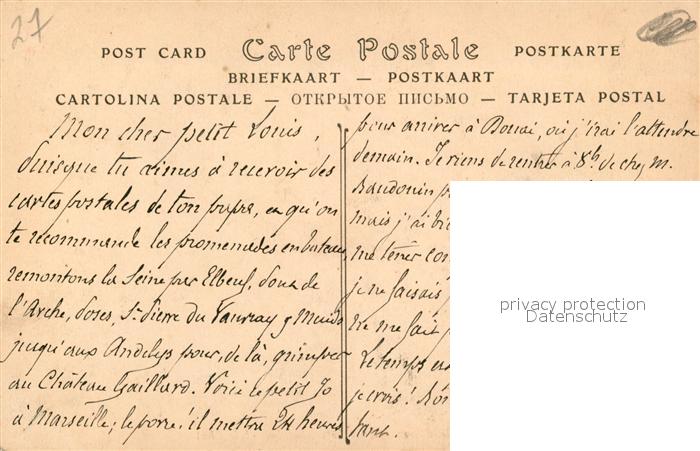 27
POST CARD Carte Postale POSTKARTE
BRIEFKAART — POSTKAART
CARTOLINA POSTALE — ОТКРЫТОЕ ПИСЬМО — TARJETA POSTAL
Mon cher petit Louis,
Puisque tu aimes à recevoir des
cartes postales de ton papa, et qu'on
te recommande les promenades en bateau,
remontons la Seine par Elbeuf, Pont de
l'Arche, Poses, St Pierre du Vauvray, Muids
jusqu'aux Andelys pour, de là, grimper
au Château Gaillard. Voici le petit Jo
à Marseille; le pauvre! il mettra 24 heures
pour arriver à Douai, où j'irai l'attendre
demain. Je viens de rentrer à 8h de chez M.
Baudouin
mais j'ai
me
je ne faisais
me fait
Le temps
je crois!
privacy protection
Datenschutz